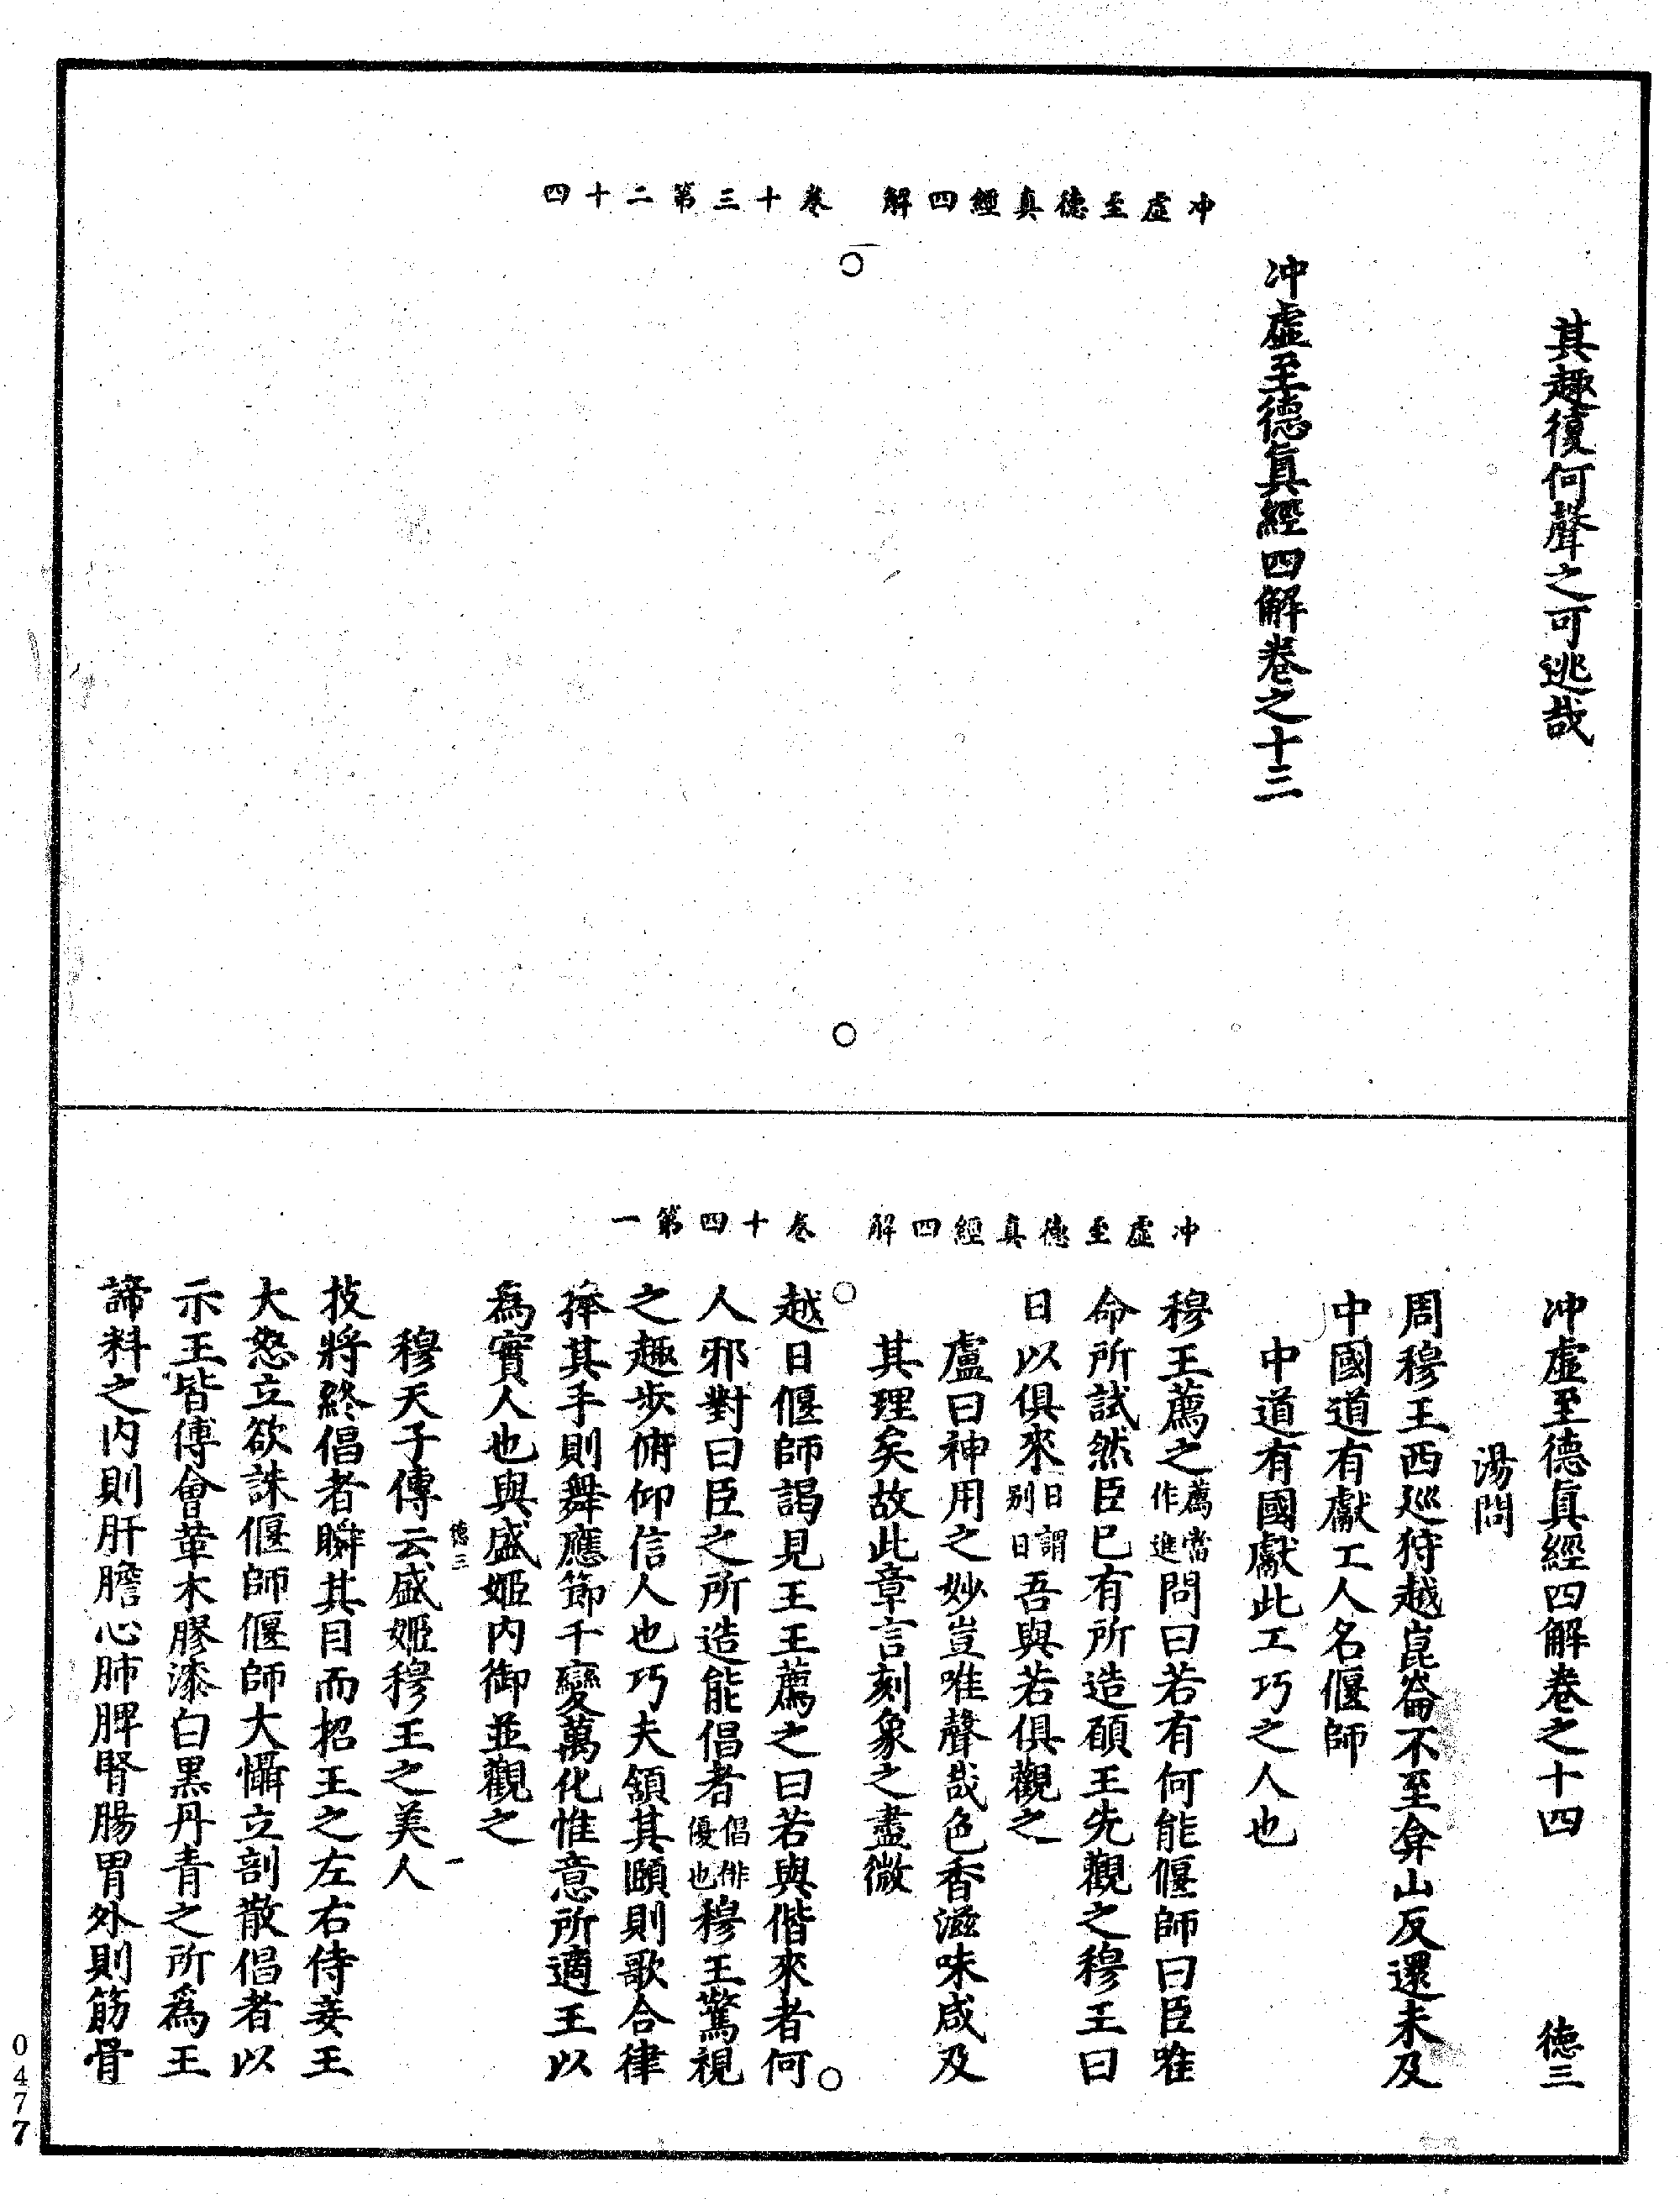 冲虛至德真經四解　卷十三第二十四
其趣復何聲之可逃哉
冲虛至德眞經四解卷之十三
冲虛至德真經四解　卷十四第一
冲虛至德眞經四解卷之十四　德三
湯問
周穆王西廵狩越崑崙不至弇山反還未及
中國道有獻工人名偃師
中道有國獻此工巧之人也
穆王薦之薦當作進問曰若有何能偃師曰臣唯
命所試然臣已有所造願王先觀之穆王曰
日以俱來日謂别日吾與若俱觀之
盧曰神用之妙豈唯聲哉色香滋味咸及
其理矣故此章言刻象之盡微
越日偃師謁見王王薦之曰若與偕來者何
人邪對曰臣之所造能倡者倡俳優也穆王驚視
之趣步俯仰信人也巧夫頷其頤則歌合律
捧其手則舞應節千變萬化惟意所適王以
爲實人也與盛姬內御並觀之
德三　一
穆天子傳云盛姬穆王之美人
技將終倡者瞬其目而招王之左右侍妾王
大怒立欲誅偃師偃師大懾立剖散倡者以
示王皆傅會革木膠漆白黑丹青之所爲王
諦料之內則肝膽心肺脾腎腸胃外則筋骨
0477